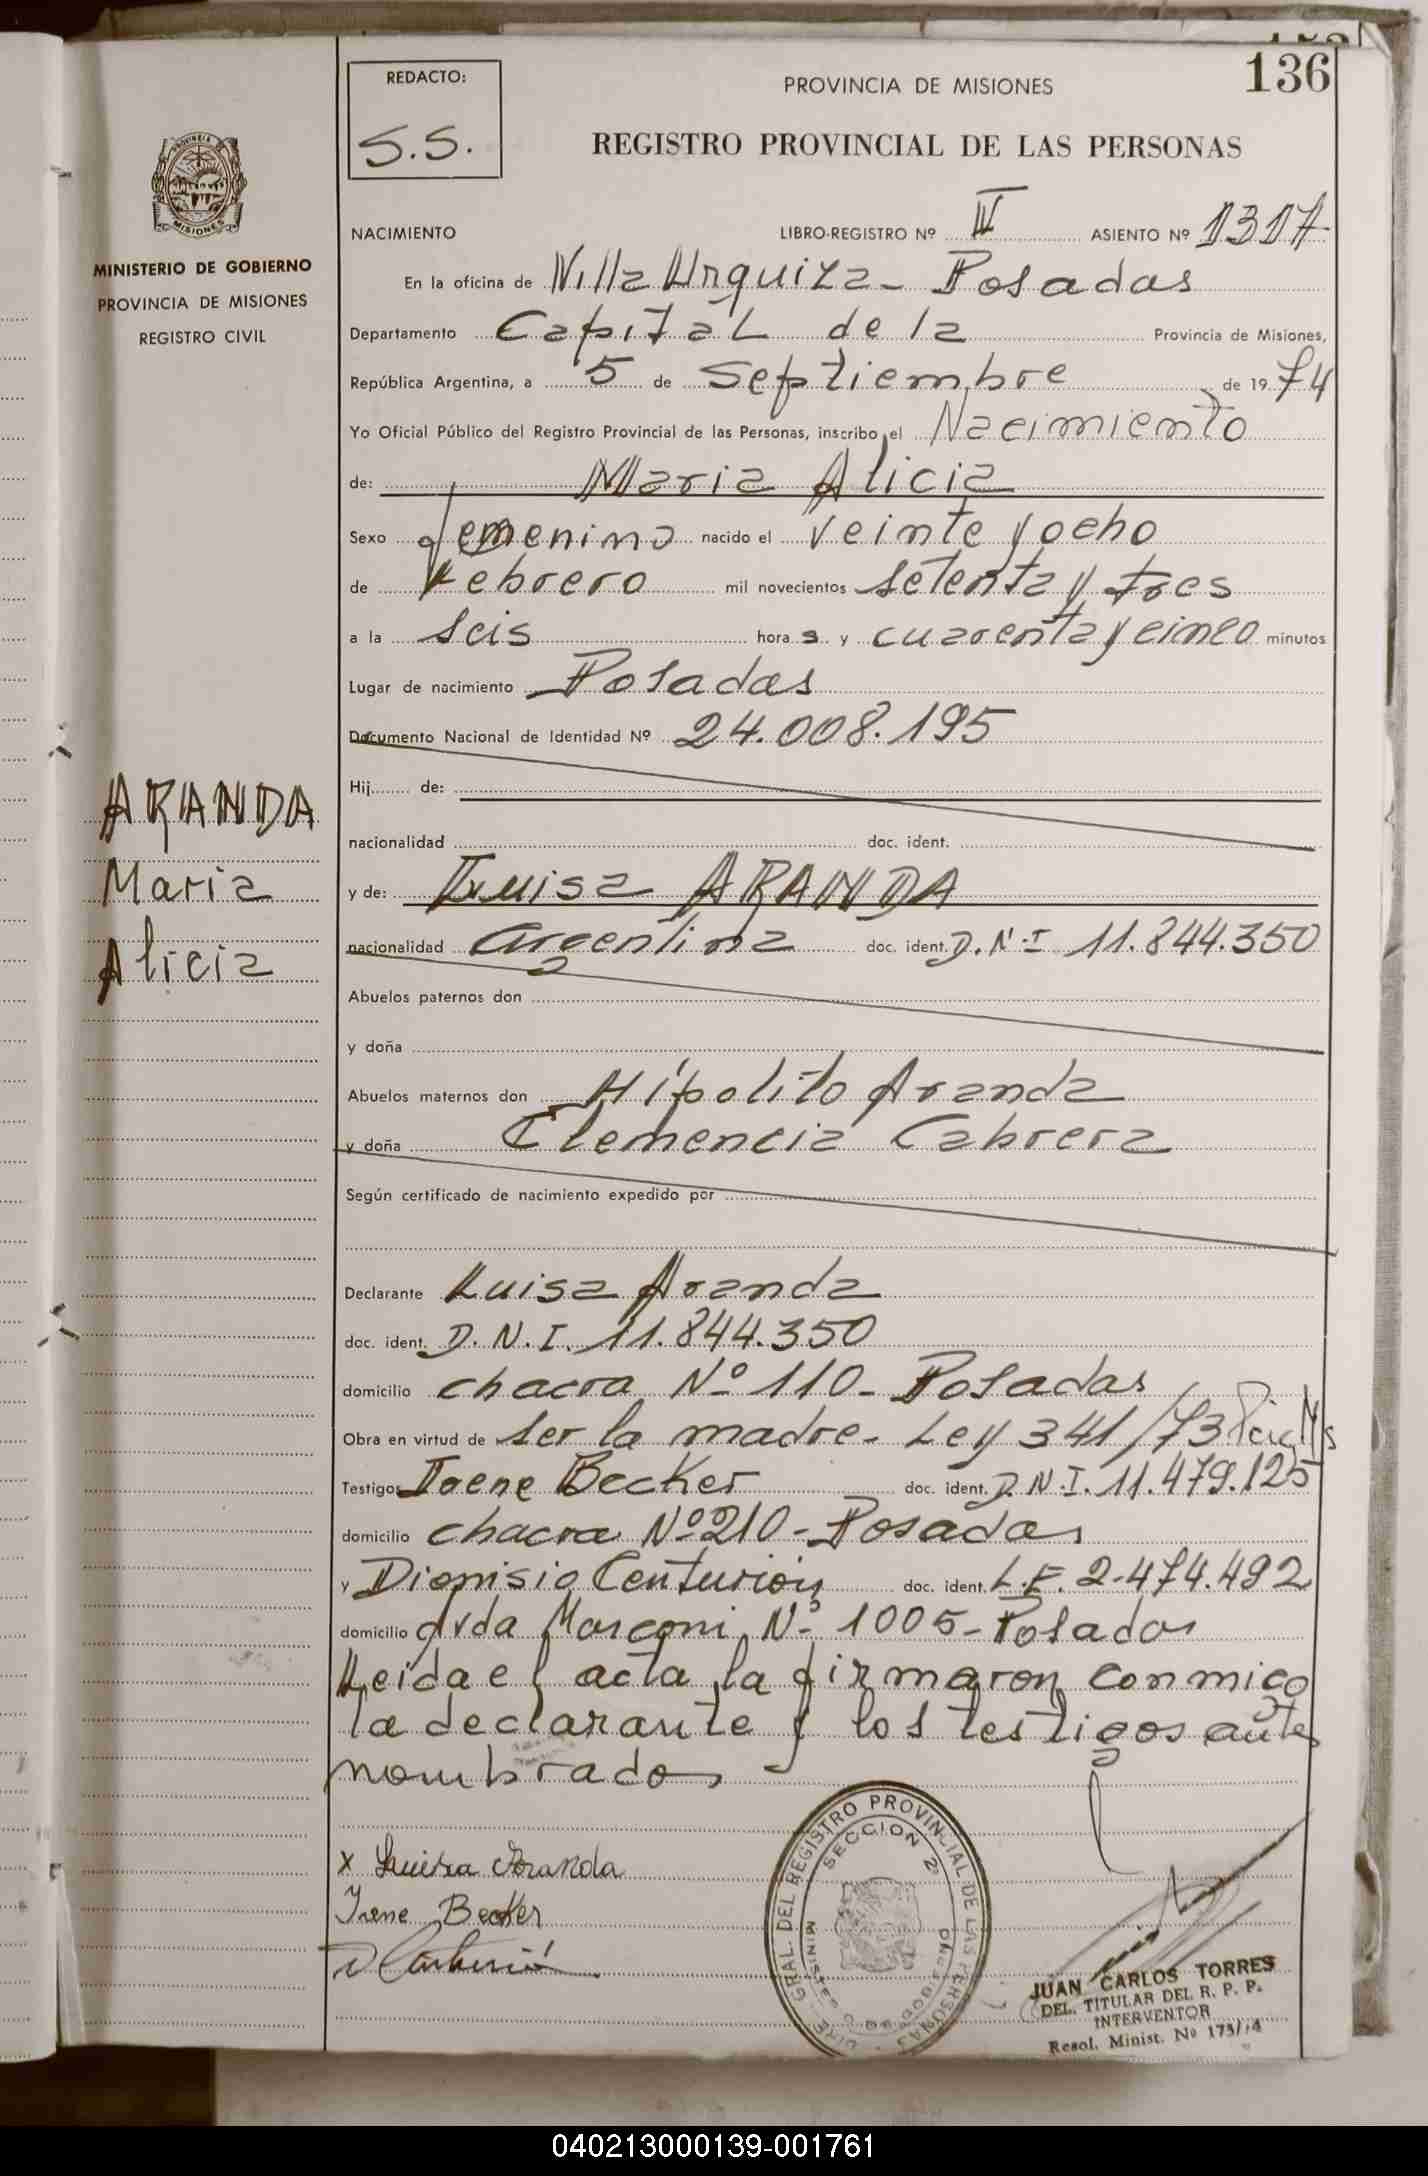 136
REDACTO:
S.S.
PROVINCIA DE MISIONES
REGISTRO PROVINCIAL DE LAS PERSONAS
MINISTERIO DE GOBIERNO
PROVINCIA DE MISIONES
REGISTRO CIVIL
NACIMIENTO LIBRO-REGISTRO Nº IV ASIENTO Nº 1317
En la oficina de Villa Urquiza - Posadas
Departamento Capital de la Provincia de Misiones,
República Argentina, a 5 de Septiembre de 1974
Yo Oficial Público del Registro Provincial de las Personas, inscribo el Nacimiento
de: Maria Alicia
Sexo femenino nacido el veinte y ocho
de Febrero mil novecientos setenta y tres
a la seis hora s y cuarenta y cinco minutos
Lugar de nacimiento Posadas
Documento Nacional de Identidad Nº 24.008.195
Hij........ de:
nacionalidad doc. ident.
ARANDA
Maria
Alicia
y de: Luisa ARANDA
nacionalidad Argentina doc. ident. D.N.I 11.844.350
Abuelos paternos don
y doña
Abuelos maternos don Hipolito Aranda
y doña Clemencia Cabrera
Según certificado de nacimiento expedido por
Declarante Luisa Aranda
doc. ident. D.N.I. 11.844.350
domicilio chacra Nº 110 - Posadas
Obra en virtud de ser la madre - Ley 341/73
Testigos Irene Becker doc. ident. D.N.I. 11.479.125
domicilio chacra Nº 210 - Posadas
y Dionisio Centurión doc. ident. L.E. 2.474.492
domicilio Avda Marconi Nº 1005 - Posadas
Leida el acta la firmaron conmigo
la declarante y los testigos ante
nombrados
x Luisa Aranda
Irene Becker
D Centurión
GRAL. DEL REGISTRO PROVINCIAL DE LAS PERSONAS
SECCION 2ª
JUAN CARLOS TORRES
DEL. TITULAR DEL R. P. P.
INTERVENTOR
Resol. Minist. Nº 173/74
040213000139-001761